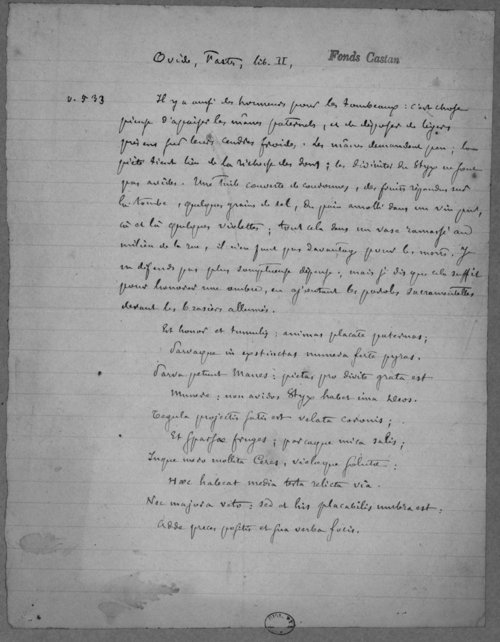 Ovide, Fastes, lib. II,
Fonds Castan
v. 533
Il y a aussi des honneurs pour les tombeaux : c'est chose
pieuse d'apaiser les mânes paternels, et de déposer de légers
présens sur leurs cendres froides. Les mânes demandent peu ; leur
piété tient lieu de la richesse des dons ; les divinités du Styx ne sont
pas avides. Une tuile couverte de couronnes, des fruits répandus sur
la tombe, quelques grains de sel, du pain amolli dans un vin pur,
çà et là quelques violettes ; tout cela dans un vase ramassé au
milieu de la rue, il n'en faut pas davantage pour les morts. Je
ne défends pas plus somptueuse dépense ; mais je dis que cela suffit
pour honorer une ombre, en ajoutant les paroles sacramentelles
devant les brasiers allumés.
Est honor et tumulis : animas placate paternas ;
Parvaque in exstinctas munera ferte pyras.
Parva petunt Manes : pietas pro divite grata est
Munere : non avidos Styx habet ima Deos.
Tegula projectis satis est velata coronis ;
Et sparsæ fruges ; parcaque mica salis ;
Inque mero mollita Ceres, violæque solutæ :
Hæc habeat media testa relicta via.
Nec majora veto : sed et his placabilis umbra est ;
Adde preces positis et sua verba focis.